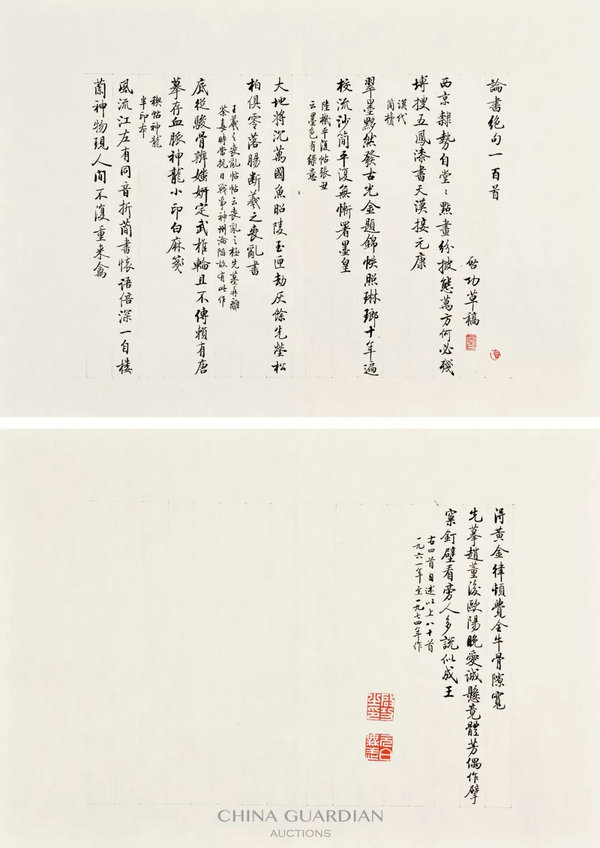 論書絕句一百首
啓功草稿
西京隸勢自堂〻點畫紛披態萬方何必殘
塼搜五鳳漆書天漢接元康
漢代
簡牘
翠墨黟然發古光金題錦帙照琳瑯十年遍
校流沙簡平復無慚署墨皇
陸機平復帖張丑
云墨色有綠意
大地將沉萬國魚昭陵玉匣劫灰餘先塋松
柏俱零落腸斷羲之喪亂書
王羲之喪亂帖帖云喪亂之極先墓再離
荼毒時當抗日戰爭神州淪陷故有此作
底從駿骨辨媸妍定武椎輪且不傳賴有唐
摹存血脈神龍小印白麻箋
禊帖神龍
半印本
風流江左有同音折簡書懷語倍深一自樓
蘭神物現人間不復重來禽
淂黃金律頓費全牛骨隙寬
先摹趙董後歐陽晚愛誠懸竟體芳偶作擘
窠釘壁看旁人多說似成王
右四首自述以上八十首
一九六一年至一九七四年作
CHINA GUARDIAN
AUCTIONS